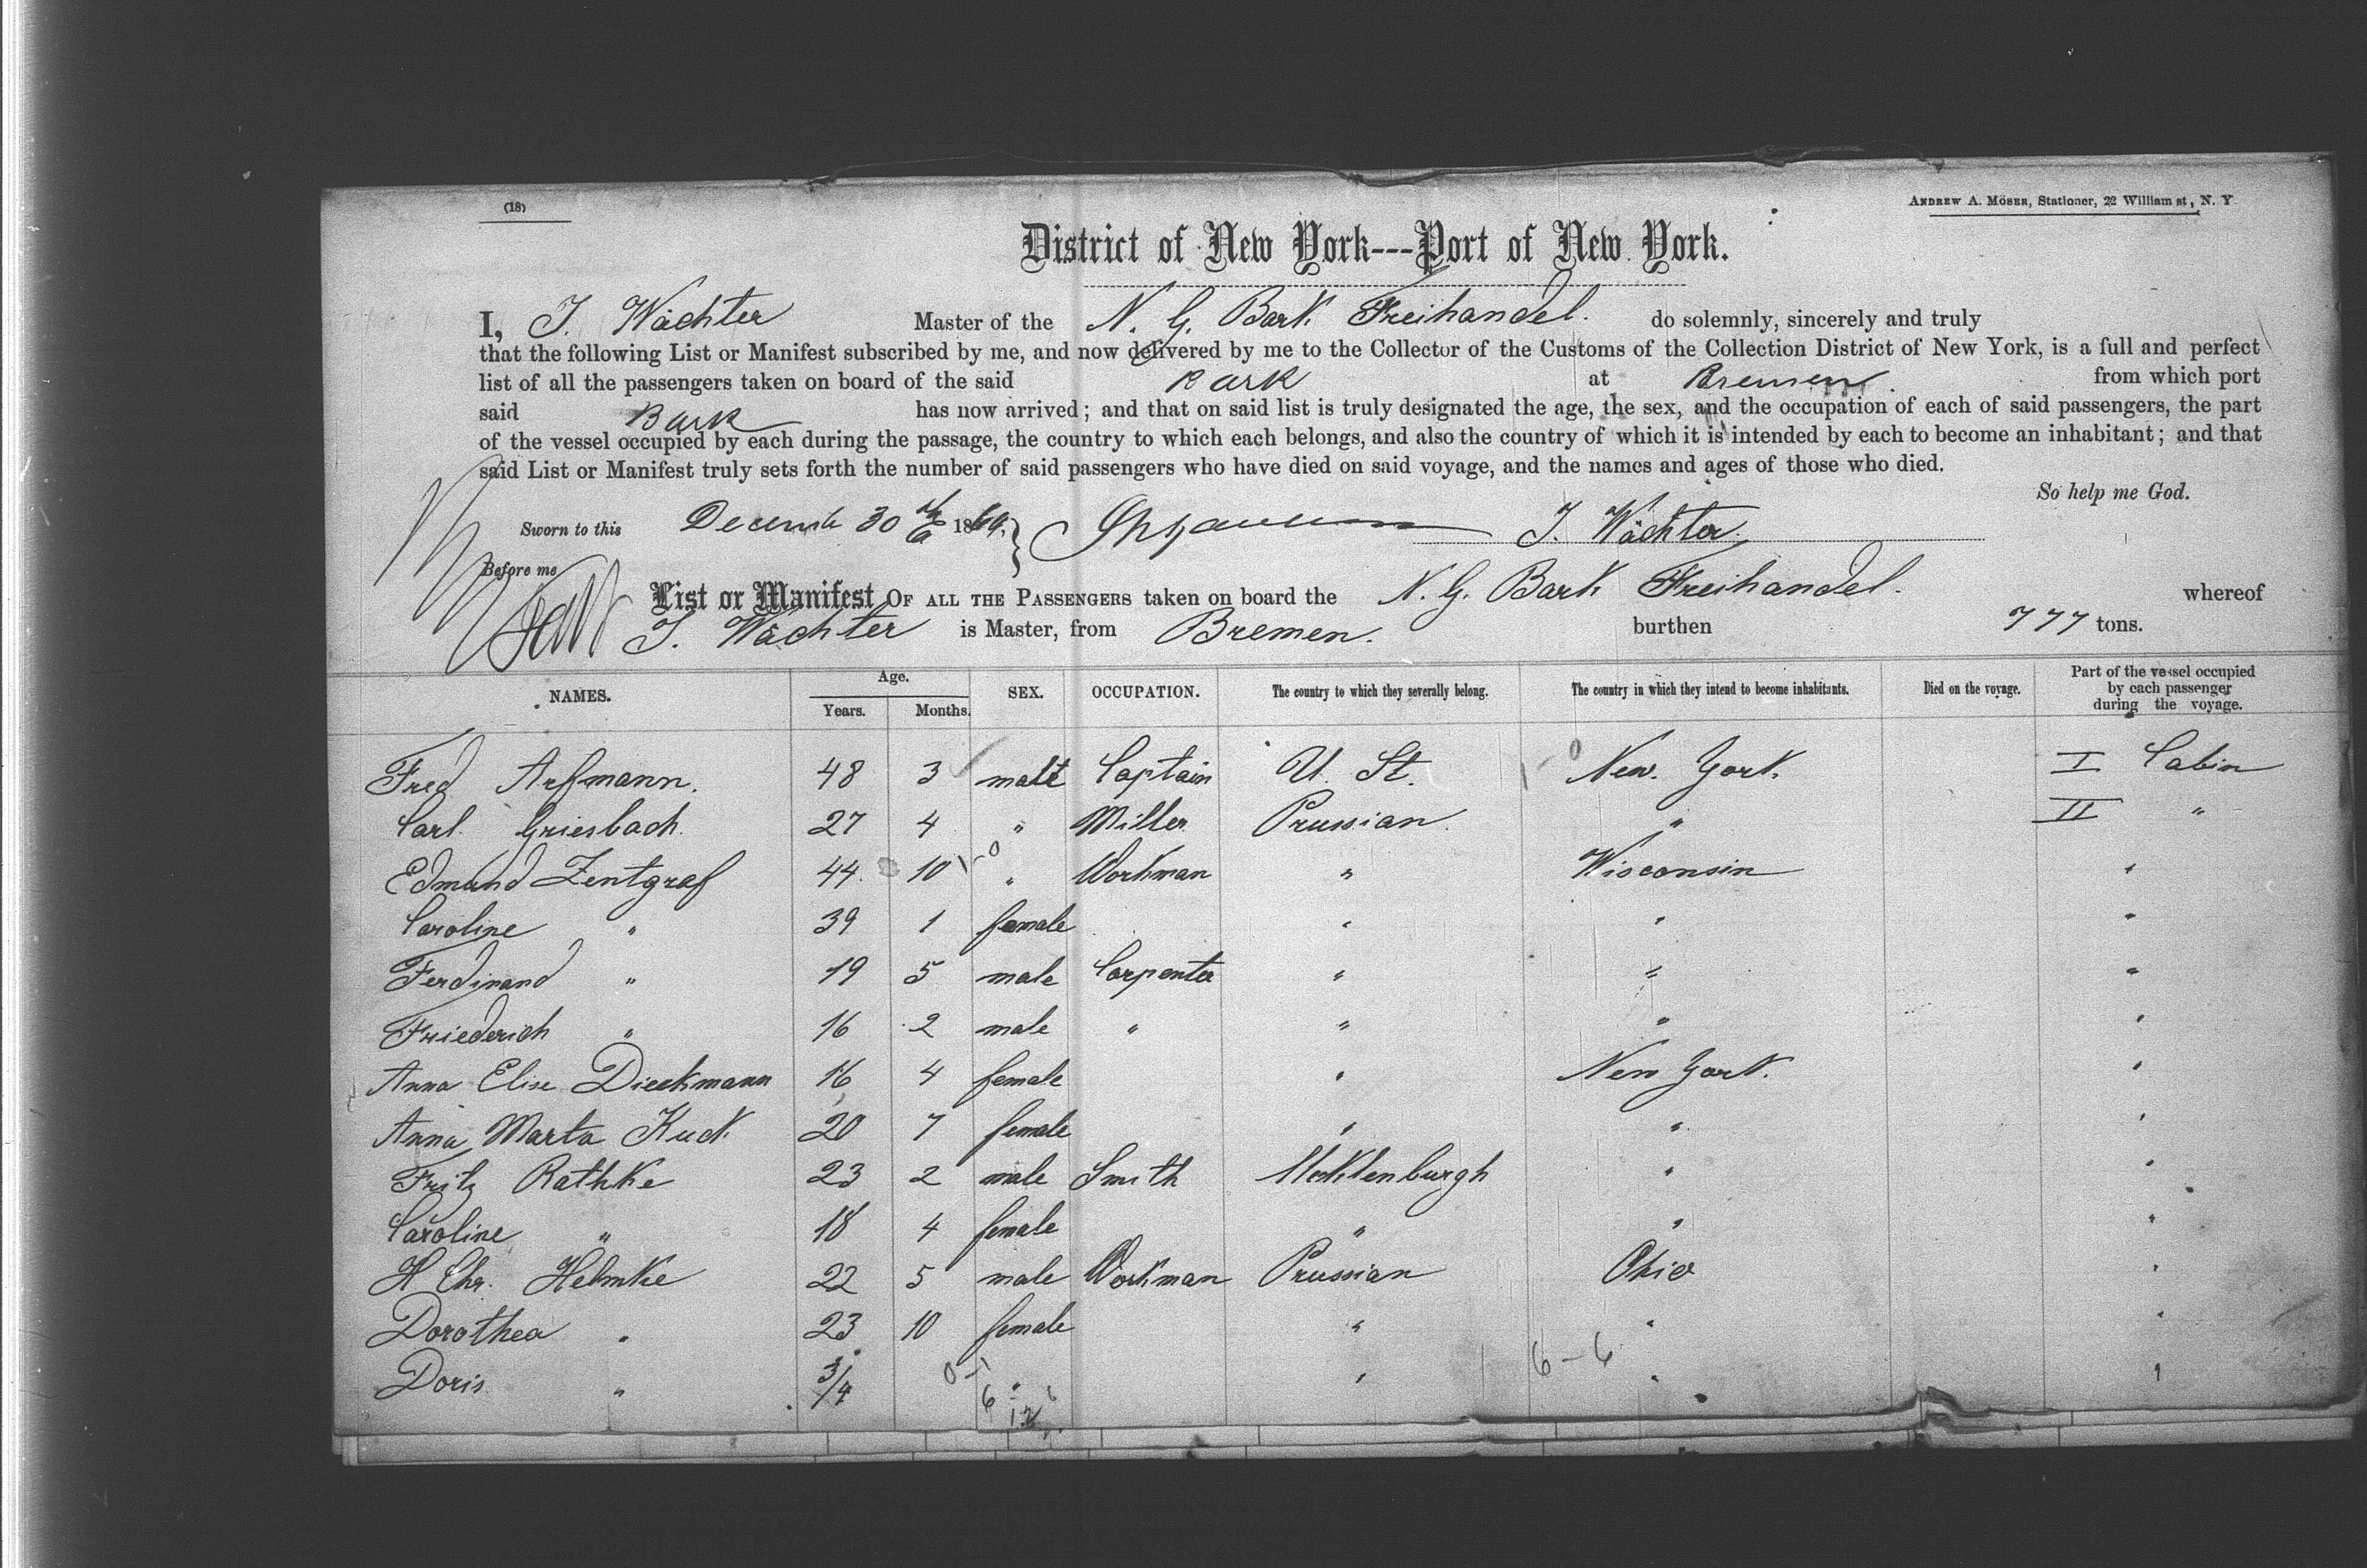 (18)
ANDREW A. MÖSER, Stationer, 22 William st, N. Y
District of New York---Port of New York.
I, J. Wächter Master of the N. G. Bark Freihandel. do solemnly, sincerely and truly
that the following List or Manifest subscribed by me, and now delivered by me to the Collector of the Customs of the Collection District of New York, is a full and perfect
list of all the passengers taken on board of the said Bark at Bremen. from which port
said Bark has now arrived; and that on said list is truly designated the age, the sex, and the occupation of each of said passengers, the part
of the vessel occupied by each during the passage, the country to which each belongs, and also the country of which it is intended by each to become an inhabitant; and that
said List or Manifest truly sets forth the number of said passengers who have died on said voyage, and the names and ages of those who died.
So help me God.
Sworn to this 30 th 1869. J. Wächter.
Before me
List or Manifest OF ALL THE PASSENGERS taken on board the N. G. Bark Freihandel. whereof
J. Wächter is Master, from Bremen. burthen 777 tons.
NAMES. Age. Years. Months. SEX. OCCUPATION. The country to which they severally belong. The country in which they intend to become inhabitants. Died on the voyage. Part of the vessel occupied by each passenger during the voyage.
Fred Arfmann. 48 3 male Captain U. St. New York. I Cabin
Carl Griesbach. 27 4 " Miller Prussian. " II "
Edmund Zentgraf 44 10 " Workman " Wisconsin "
Caroline " 39 1 female " " "
Ferdinand " 19 5 male Carpenter " " "
Friederich " 16 2 male " " " "
Anna Elise Dieckmann 16 4 female " New York. "
Anna Marta Kuck 20 7 female " " "
Fritz Rathke 23 2 male Smith Mecklenburgh " "
Caroline " 18 4 female " " "
H Chr. Helmke 22 5 male Workman Prussian Ohio "
Dorothea " 23 10 female " " "
Doris " 3/4 " " " "
6 - 6